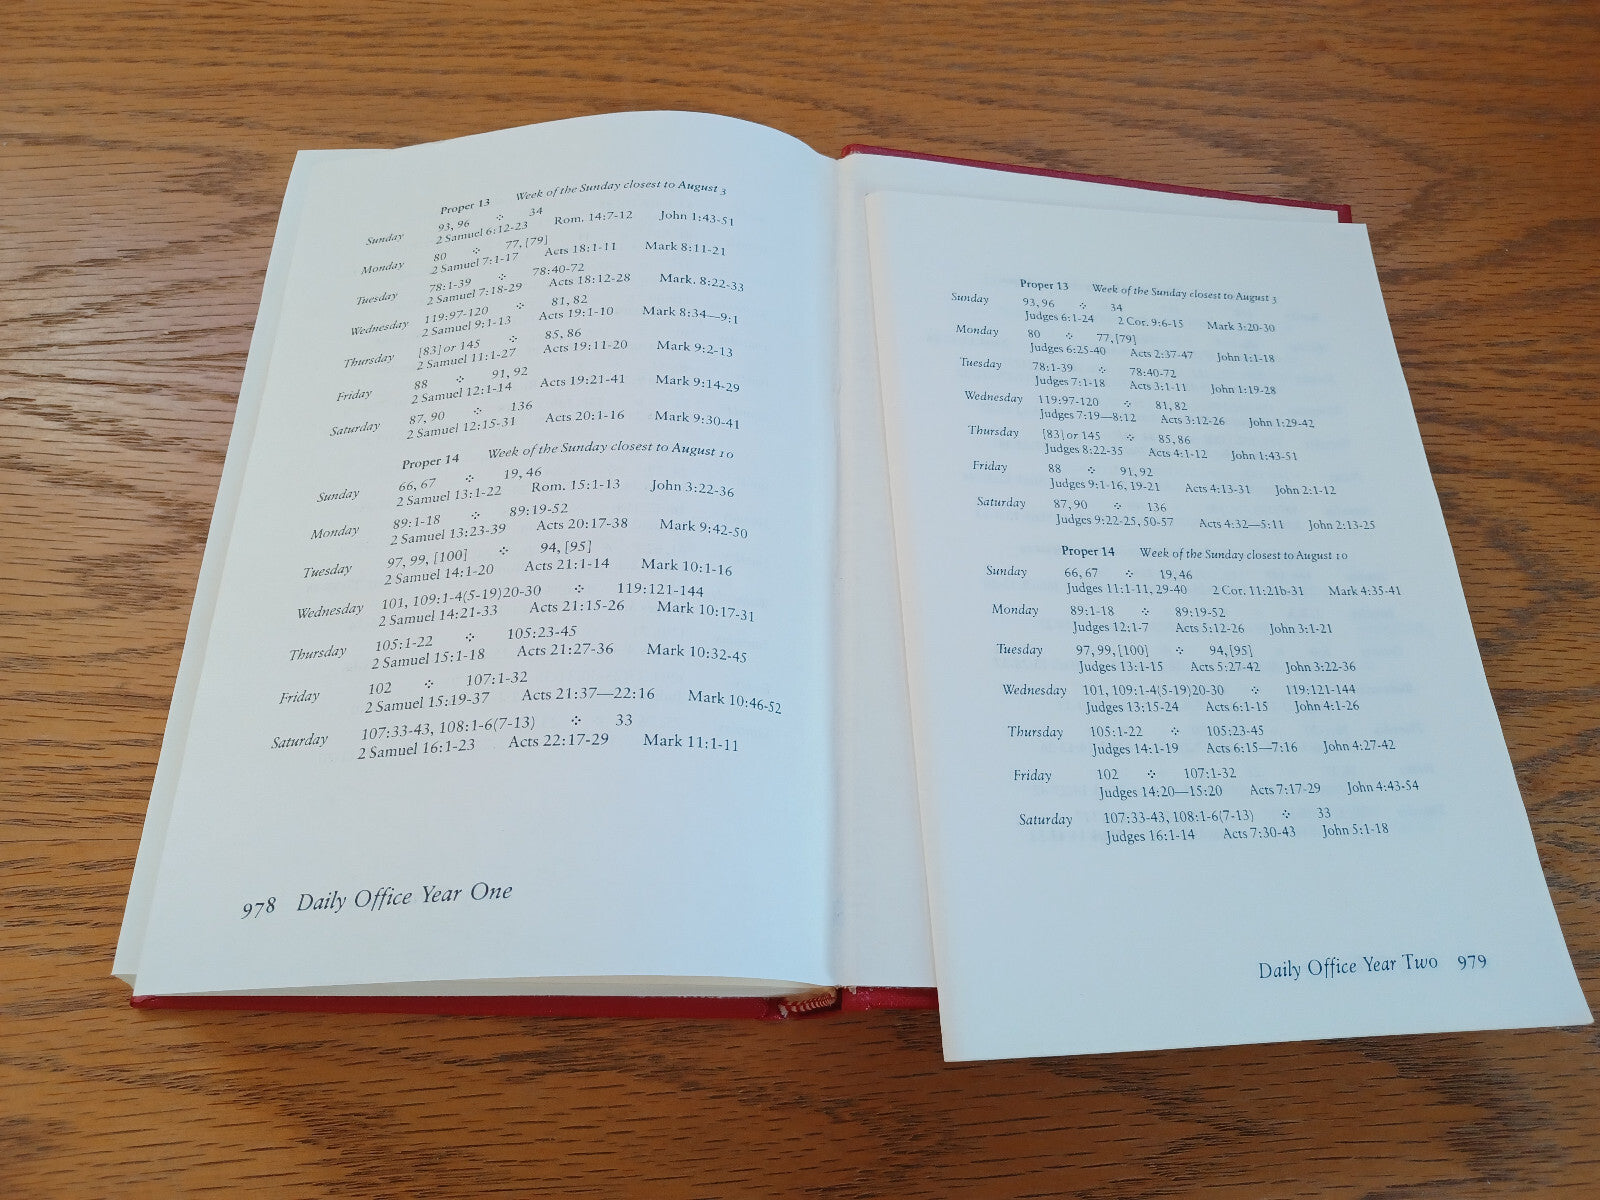 Proper 13 Week of the Sunday closest to August 3
Sunday 93, 96 ⁘ 34
2 Samuel 6:12-23 Rom. 14:7-12 John 1:43-51
Monday 80 ⁘ 77, [79]
2 Samuel 7:1-17 Acts 18:1-11 Mark 8:11-21
Tuesday 78:1-39 ⁘ 78:40-72
2 Samuel 7:18-29 Acts 18:12-28 Mark. 8:22-33
Wednesday 119:97-120 ⁘ 81, 82
2 Samuel 9:1-13 Acts 19:1-10 Mark 8:34—9:1
Thursday [83] or 145 ⁘ 85, 86
2 Samuel 11:1-27 Acts 19:11-20 Mark 9:2-13
Friday 88 ⁘ 91, 92
2 Samuel 12:1-14 Acts 19:21-41 Mark 9:14-29
Saturday 87, 90 ⁘ 136
2 Samuel 12:15-31 Acts 20:1-16 Mark 9:30-41
Proper 14 Week of the Sunday closest to August 10
Sunday 66, 67 ⁘ 19, 46
2 Samuel 13:1-22 Rom. 15:1-13 John 3:22-36
Monday 89:1-18 ⁘ 89:19-52
2 Samuel 13:23-39 Acts 20:17-38 Mark 9:42-50
Tuesday 97, 99, [100] ⁘ 94, [95]
2 Samuel 14:1-20 Acts 21:1-14 Mark 10:1-16
Wednesday 101, 109:1-4(5-19)20-30 ⁘ 119:121-144
2 Samuel 14:21-33 Acts 21:15-26 Mark 10:17-31
Thursday 105:1-22 ⁘ 105:23-45
2 Samuel 15:1-18 Acts 21:27-36 Mark 10:32-45
Friday 102 ⁘ 107:1-32
2 Samuel 15:19-37 Acts 21:37—22:16 Mark 10:46-52
Saturday 107:33-43, 108:1-6(7-13) ⁘ 33
2 Samuel 16:1-23 Acts 22:17-29 Mark 11:1-11
978 Daily Office Year One
Proper 13 Week of the Sunday closest to August 3
Sunday 93, 96 ⁘ 34
Judges 6:1-24 2 Cor. 9:6-15 Mark 3:20-30
Monday 80 ⁘ 77, [79]
Judges 6:25-40 Acts 2:37-47 John 1:1-18
Tuesday 78:1-39 ⁘ 78:40-72
Judges 7:1-18 Acts 3:1-11 John 1:19-28
Wednesday 119:97-120 ⁘ 81, 82
Judges 7:19—8:12 Acts 3:12-26 John 1:29-42
Thursday [83] or 145 ⁘ 85, 86
Judges 8:22-35 Acts 4:1-12 John 1:43-51
Friday 88 ⁘ 91, 92
Judges 9:1-16, 19-21 Acts 4:13-31 John 2:1-12
Saturday 87, 90 ⁘ 136
Judges 9:22-25, 50-57 Acts 4:32—5:11 John 2:13-25
Proper 14 Week of the Sunday closest to August 10
Sunday 66, 67 ⁘ 19, 46
Judges 11:1-11, 29-40 2 Cor. 11:21b-31 Mark 4:35-41
Monday 89:1-18 ⁘ 89:19-52
Judges 12:1-7 Acts 5:12-26 John 3:1-21
Tuesday 97, 99, [100] ⁘ 94, [95]
Judges 13:1-15 Acts 5:27-42 John 3:22-36
Wednesday 101, 109:1-4(5-19)20-30 ⁘ 119:121-144
Judges 13:15-24 Acts 6:1-15 John 4:1-26
Thursday 105:1-22 ⁘ 105:23-45
Judges 14:1-19 Acts 6:15—7:16 John 4:27-42
Friday 102 ⁘ 107:1-32
Judges 14:20—15:20 Acts 7:17-29 John 4:43-54
Saturday 107:33-43, 108:1-6(7-13) ⁘ 33
Judges 16:1-14 Acts 7:30-43 John 5:1-18
Daily Office Year Two 979